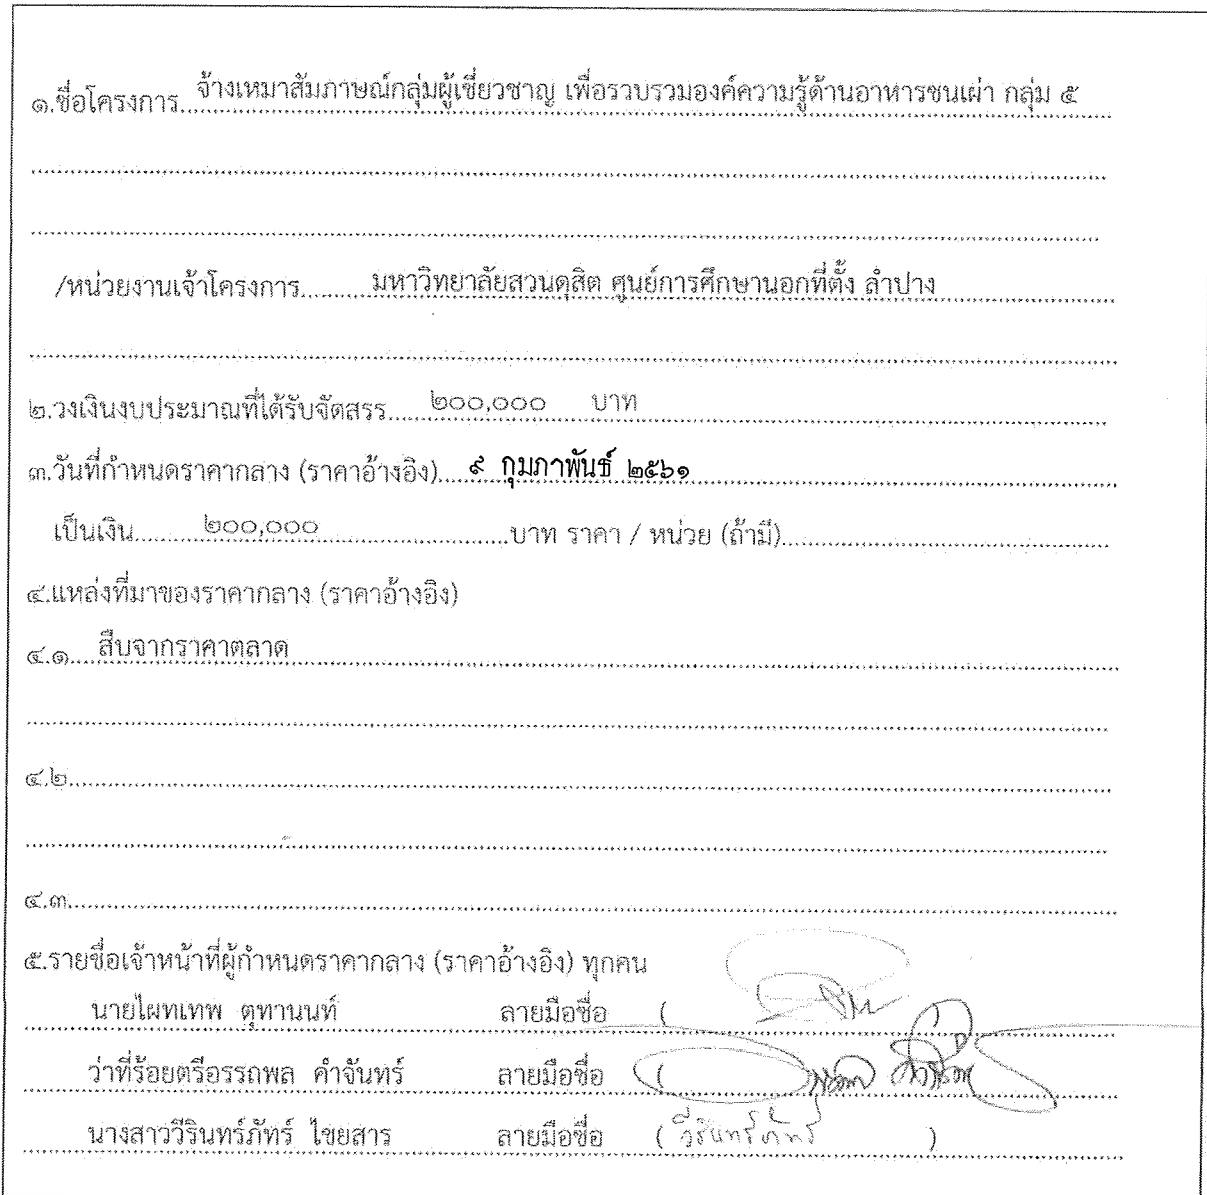 ๑.ชื่อโครงการ...จ้างเหมาสัมภาษณ์กลุ่มผู้เชี่ยวชาญ เพื่อรวบรวมองค์ความรู้ด้านอาหารชนเผ่า กลุ่ม ๕
/หน่วยงานเจ้าโครงการ.........มหาวิทยาลัยสวนดุสิต ศูนย์การศึกษานอกที่ตั้ง ลำปาง
๒.วงเงินงบประมาณที่ได้รับจัดสรร.....๒๐๐,๐๐๐ บาท
๓.วันที่กำหนดราคากลาง (ราคาอ้างอิง)....๙ กุมภาพันธ์ ๒๕๖๑
เป็นเงิน.........๒๐๐,๐๐๐.........บาท ราคา / หน่วย (ถ้ามี).........
๔.แหล่งที่มาของราคากลาง (ราคาอ้างอิง)
๔.๑....สืบจากราคาตลาด
๔.๒.........
๔.๓.........
๕.รายชื่อเจ้าหน้าที่ผู้กำหนดราคากลาง (ราคาอ้างอิง) ทุกคน
นายไผทเทพ ตุทานนท์ ลายมือชื่อ ( )
ว่าที่ร้อยตรีอรรถพล คำจันทร์ ลายมือชื่อ (
นางสาววีรินทร์ภัทร์ ไชยสาร ลายมือชื่อ ( วีรินทร์ภัทร์ )